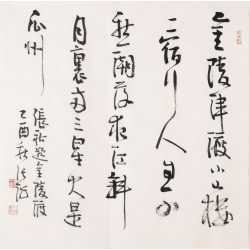 金陵津渡小山楼
一宿行人自可
愁潮落夜江斜
月裏两三星火是
瓜州
張祜題金陵渡
乙酉秋